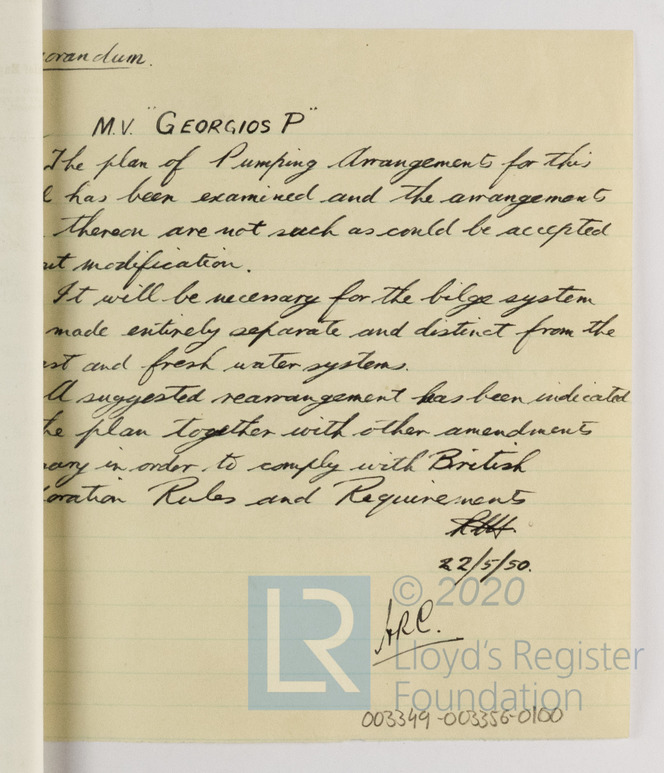 orandum.
M.V. "GEORGIOS P"
The plan of Pumping Arrangements for this
l has been examined and the arrangements
thereon are not such as could be accepted
ut modification.
It will be necessary for the bilge system
made entirely separate and distinct from the
st and fresh water systems.
A suggested rearrangement has been indicated
he plan together with other amendments
sary in order to comply with British
oration Rules and Requirements
22/5/50.
ARC.
LR
© 2020
Lloyd's Register
Foundation
003349-003356-0100